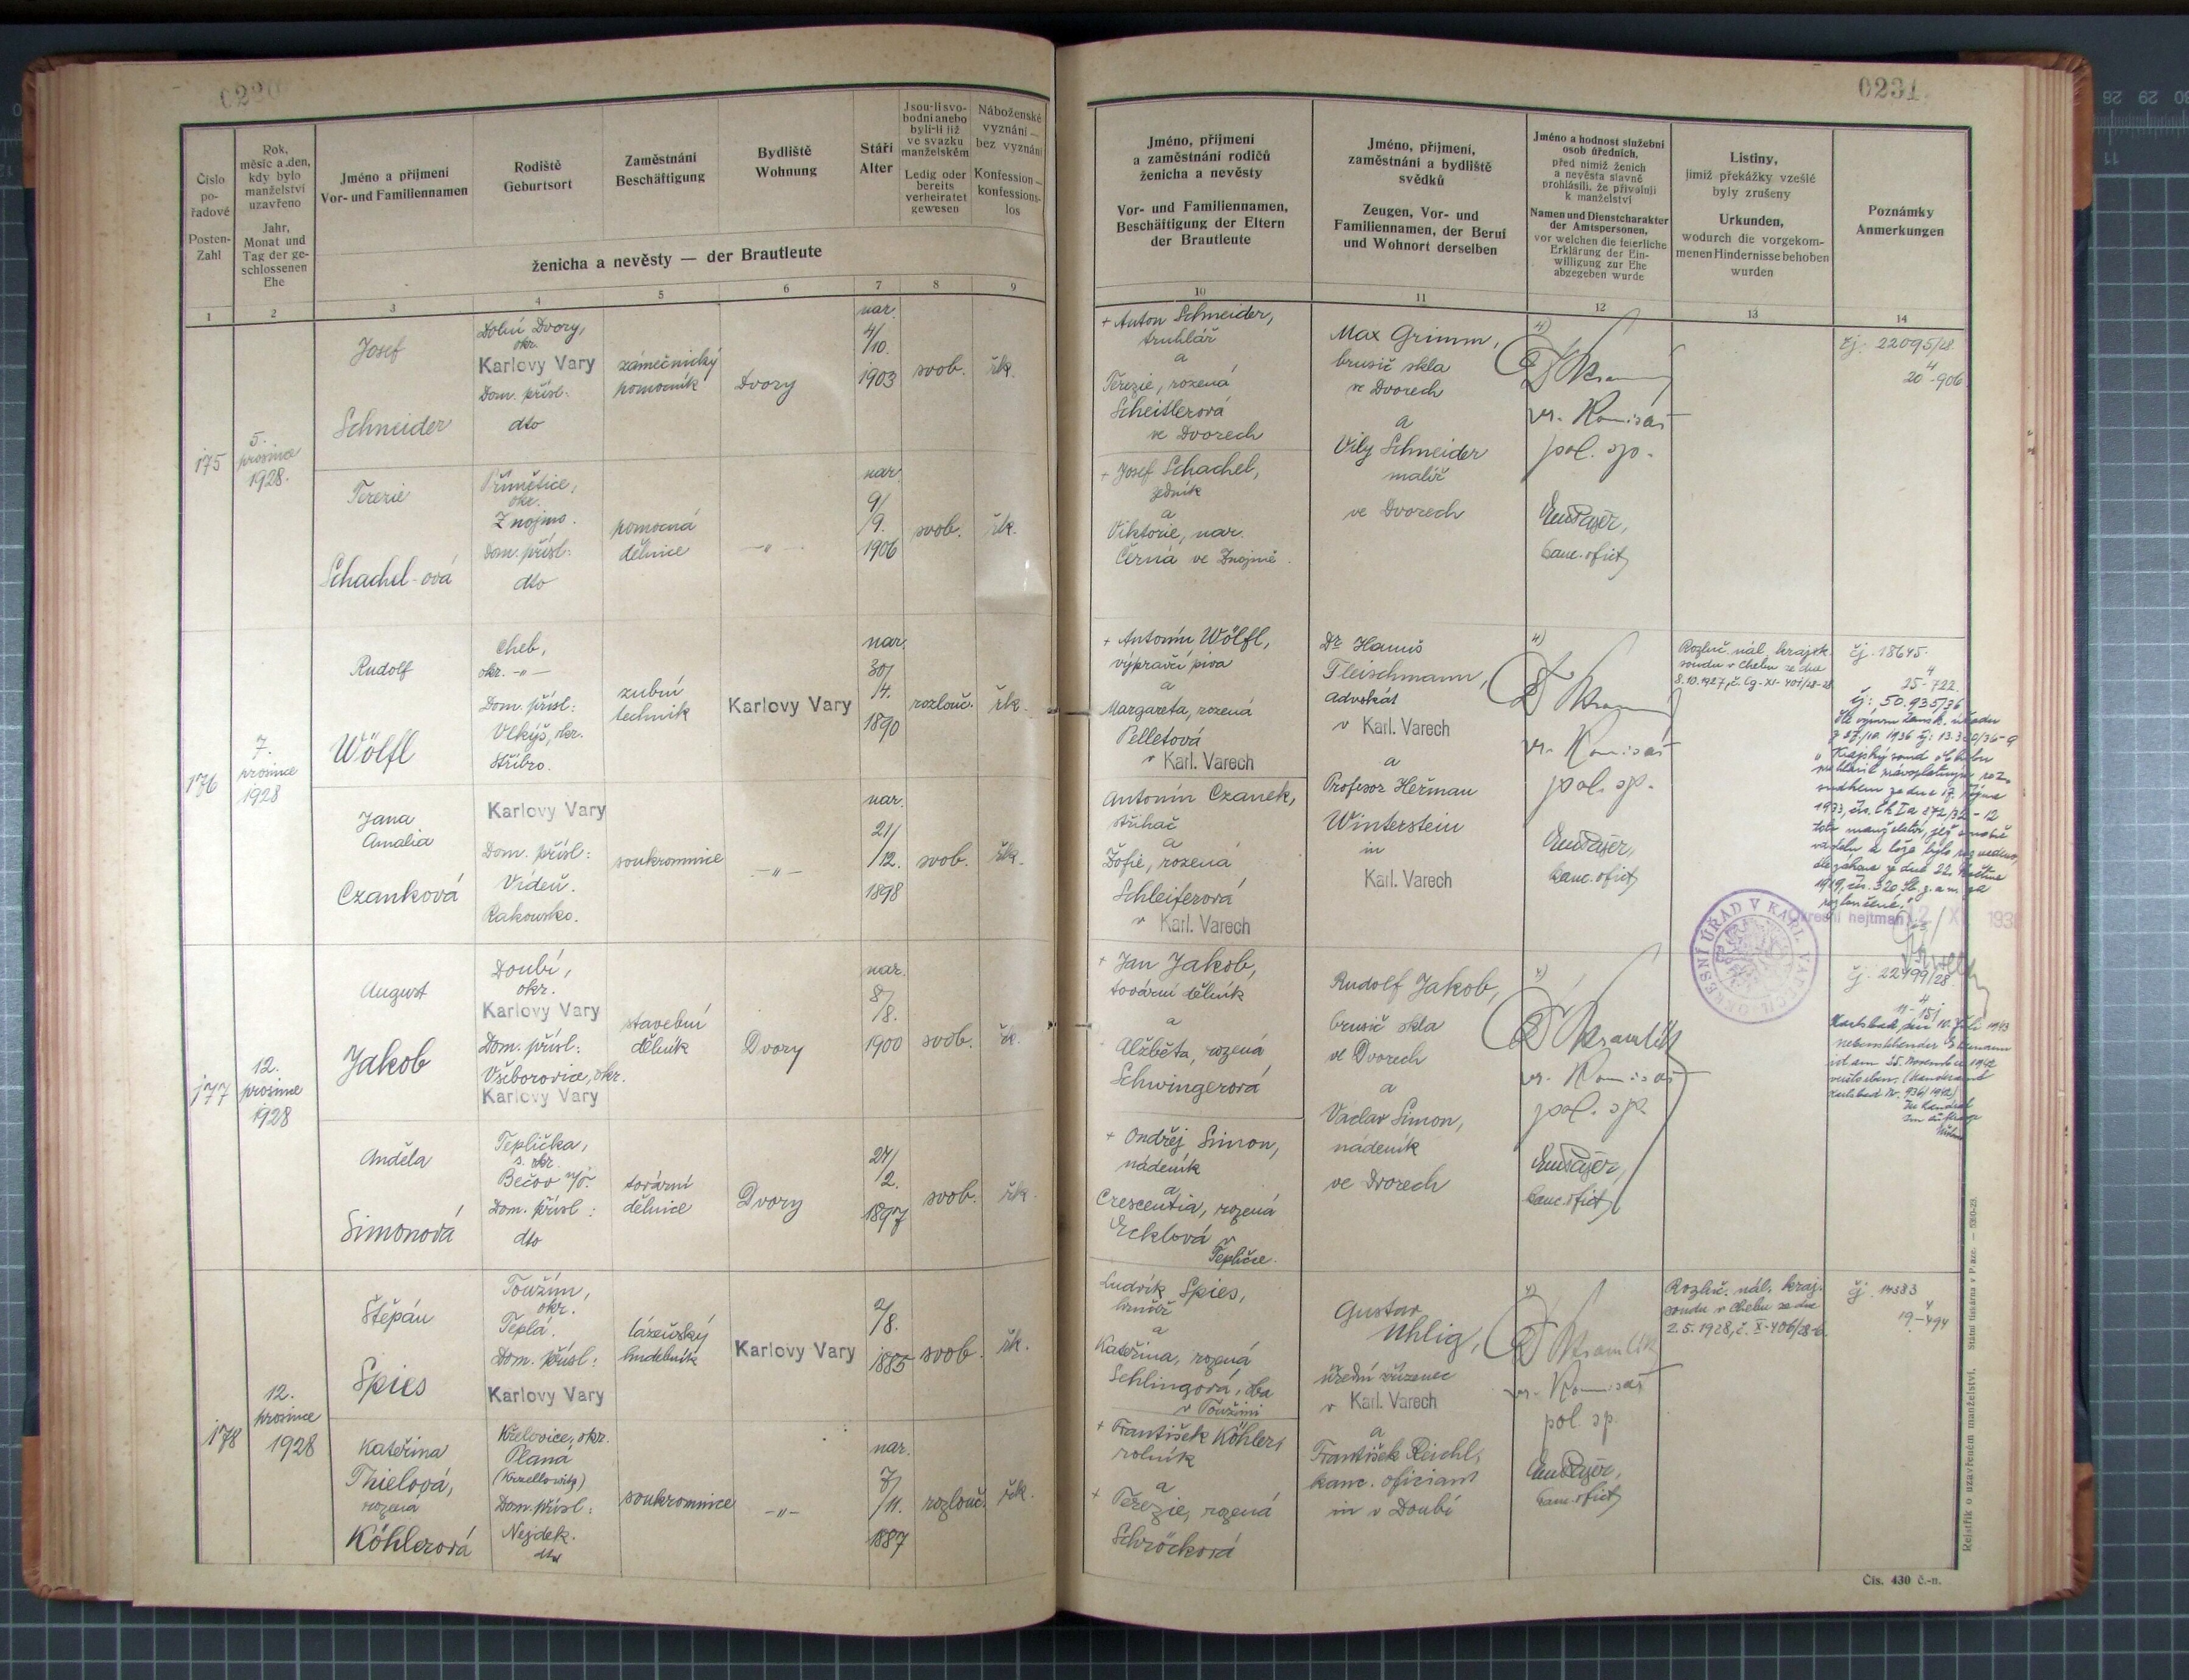 0231
Číslo pořadové
Posten-Zahl
Rok, měsíc a den, kdy bylo manželství uzavřeno
Jahr, Monat und Tag der geschlossenen Ehe
Jméno a příjmení
Vor- und Familiennamen
Rodiště
Geburtsort
Zaměstnání
Beschäftigung
Bydliště
Wohnung
Stáří
Alter
Jsou-li svobodni anebo byli-li již ve svazku manželském
Ledig oder bereits verheiratet gewesen
Náboženské vyznání — bez vyznání
Konfession — konfessionslos
ženicha a nevěsty — der Brautleute
Jméno, příjmení a zaměstnání rodičů ženicha a nevěsty
Vor- und Familiennamen, Beschäftigung der Eltern der Brautleute
Jméno, příjmení, zaměstnání a bydliště svědků
Zeugen, Vor- und Familiennamen, der Beruf und Wohnort derselben
Jméno a hodnost služební osob úředních, před nimiž ženich a nevěsta slavně prohlásili, že přivolují k manželství
Namen und Dienstcharakter der Amtspersonen, vor welchen die feierliche Erklärung der Einwilligung zur Ehe abgegeben wurde
Listiny, jimiž překážky vzešlé byly zrušeny
Urkunden, wodurch die vorgekommenen Hindernisse behoben wurden
Poznámky
Anmerkungen
1 2 3 4 5 6 7 8 9 10 11 12 13 14
175
5. prosince 1928.
Josef
Schneider
Dolní Dvory,
okr.
Karlovy Vary
Dom. přísl:
dto
zámečnický
pomocník
Dvory
nar.
4/10.
1903
svob.
řk.
+ Anton Schneider,
truhlář
a
Terezie, rozená
Scheitlerová
ve Dvorech
Max Grimm,
brusič skla
ve Dvorech
a
Vily Schneider
malíř
ve Dvorech
vr. Komisař
pol. sp.
kanc. ofict
čj. 22095/28
20-906
Terezie
Schachel-ová
Přímětice,
okr.
Znojmo.
Dom. přísl:
dto
pomocná
dělnice
—"—
nar.
9/9.
1906
svob.
řk.
+ Josef Schachel,
zedník
a
Viktorie, nar.
Černá ve Znojmě.
176
7.
prosince
1928
Rudolf
Wölfl
Cheb,
okr. —"—
Dom. přísl:
Vlkýš, okr.
Stříbro.
zubní
technik
Karlovy Vary
nar.
30/4.
1890
rozlouč.
řk.
+ Antonín Wölfl,
výpravčí piva
a
Margareta, rozená
Pelletová
v Karl. Varech
Dr Hanuš
Fleischmann,
advokát
v Karl. Varech
a
Profesor Heřman
Winterstein
in
Karl. Varech
vr. Komisař
pol. sp.
kanc. ofict
Rozluč. nál. krajsk.
soudu v Chebu ze dne
8.10.1927,
čj. 18645.
25-722.
čj: 50.935/36
Jana
Amalia
Czanková
Karlovy Vary
Dom. přísl:
Vídeň.
Rakousko.
soukromnice
—"—
nar.
21/12.
1898
svob.
řk.
Antonín Czanek,
střihač
a
Žofie, rozená
Schleiferová
v Karl. Varech
Okresní hejtman
OKRESNÍ ÚŘAD V KARL. VARECH
177
12.
prosince
1928
August
Jakob
Doubí,
okr.
Karlovy Vary
Dom. přísl:
Všeborovice, okr.
Karlovy Vary
stavební
dělník
Dvory
nar.
8/8.
1900
svob.
řk.
+ Jan Jakob,
tovární dělník
a
Alžběta, rozená
Schwingerová
Rudolf Jakob,
brusič skla
ve Dvorech
a
Vaclav Simon,
nádeník
ve Dvorech
Kramlík
vr. Komisař
pol. sp.
kanc. ofict
čj. 22499/28
Karlsbad, den 10. Juli 1943
nebenstehender Ehemann
ist am 25. November 1942
verstorben.
Anděla
Simonová
Teplička,
s. okr.
Bečov n/T.
Dom. přísl:
dto
tovární
dělnice
Dvory
27/2.
1897
svob.
řk.
+ Ondřej Simon,
nádeník
a
Crescentia, rozená
Ecklová v
Tepličce.
178
12.
prosince
1928
Štěpán
Spies
Toužim,
okr.
Teplá.
Dom. přísl:
Karlovy Vary
lázeňský
hudebník
Karlovy Vary
2/8.
1885
svob.
řk.
Ludvík Spies,
a
Kateřina, rozená
Schlingová,
v Toužimi
Gustav
Uhlig,
úřední sluzenec
v Karl. Varech
a
František Reichl,
kanc. oficiant
in v Doubí
Kramlík
vr. Komisař
pol. sp.
kanc. ofict
Rozluč. nál. kraj.
soudu v Chebu ze dne
2.5.1928,
čj. 14583
19-494
Kateřina
Thielová,
rozená
Köhlerová
Křelovice, okr.
Planá
(Krzellowitz)
Dom. přísl:
Nejdek.
dto
soukromnice
—"—
nar.
7/11.
1887
rozlouč.
řk.
+ František Köhler,
rolník
a
+ Terezie, rozená
Schröcková
Rejstřík o uzavřeném manželství. Státní tiskárna v Praze.
Čís. 430 č.-n.